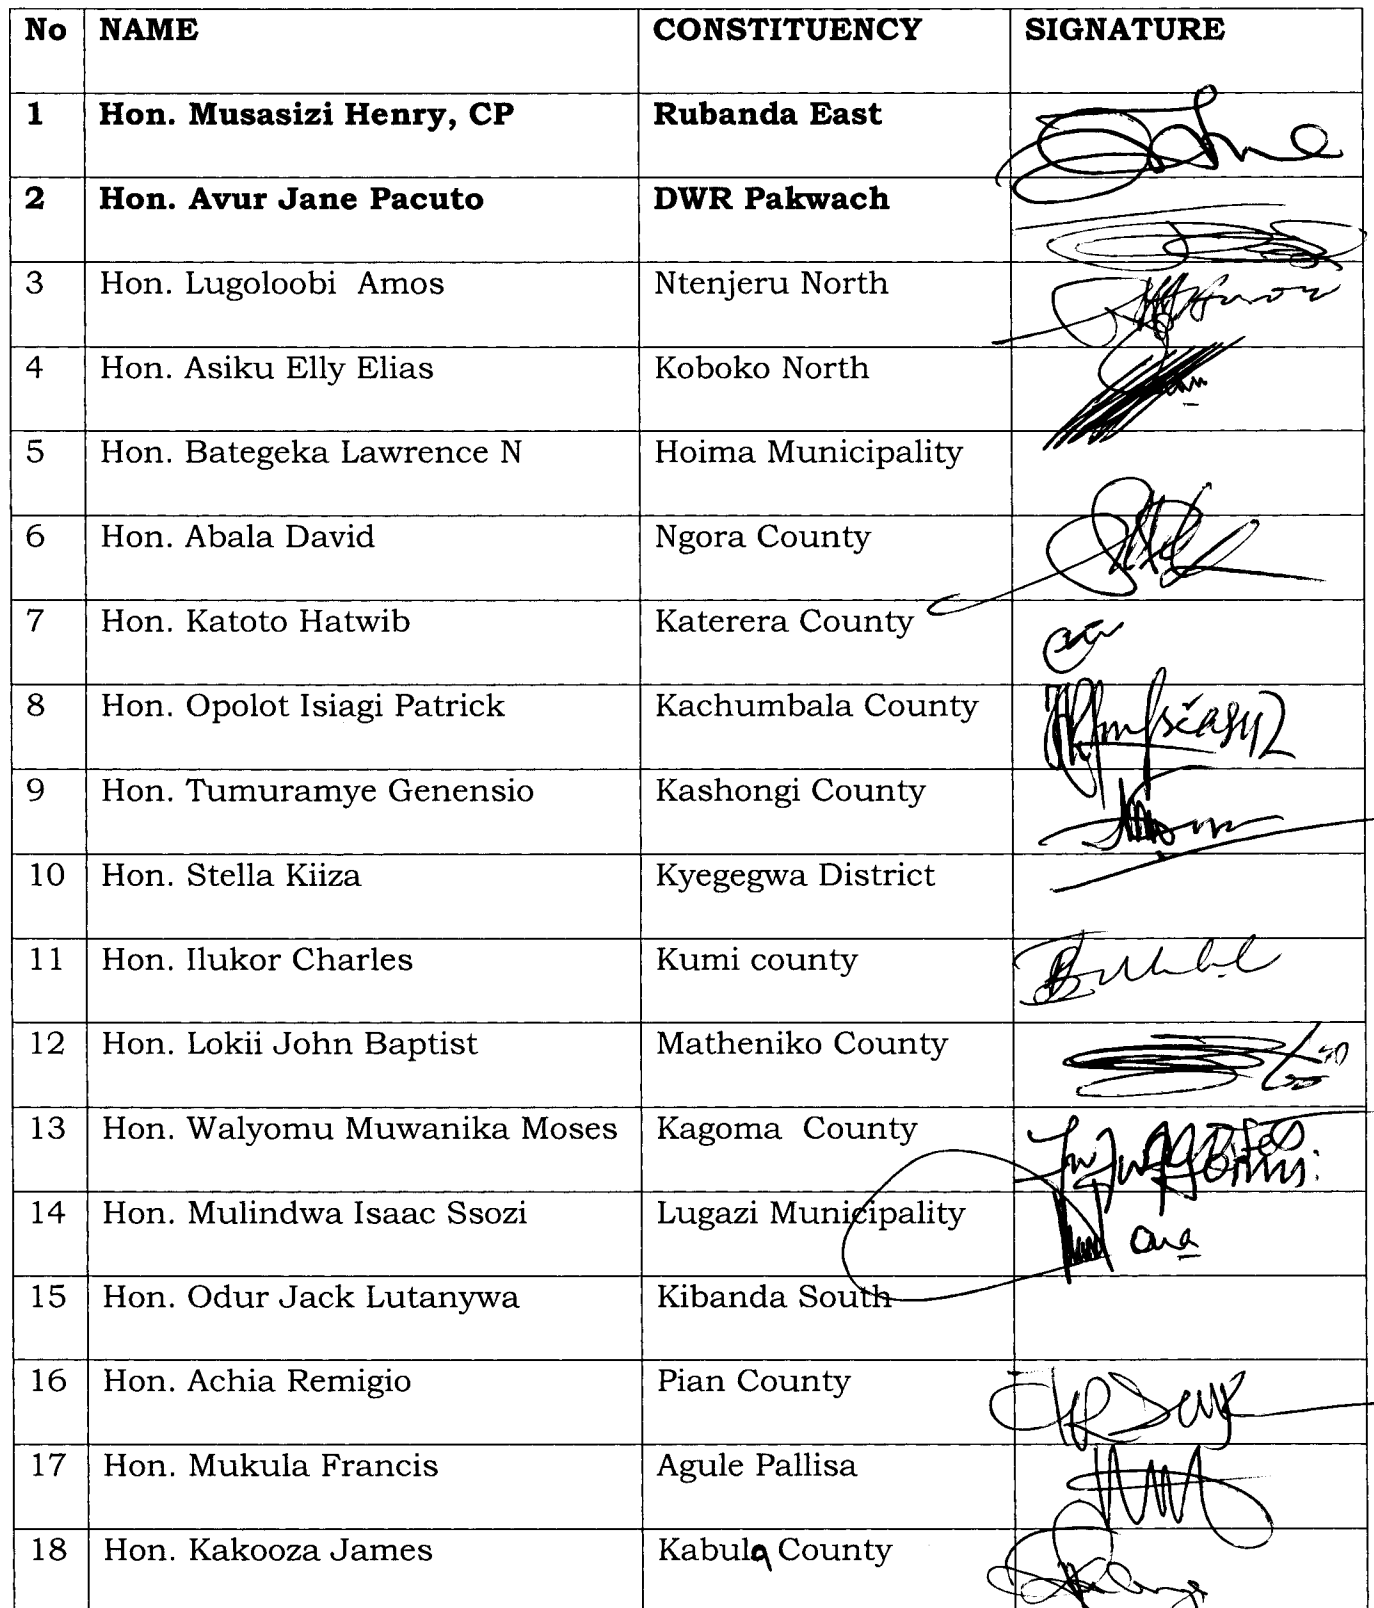 No NAME CONSTITUENCY SIGNATURE
1 Hon. Musasizi Henry, CP Rubanda East
2 Hon. Avur Jane Pacuto DWR Pakwach
3 Hon. Lugoloobi Amos Ntenjeru North
4 Hon. Asiku Elly Elias Koboko North
5 Hon. Bategeka Lawrence N Hoima Municipality
6 Hon. Abala David Ngora County
7 Hon. Katoto Hatwib Katerera County
8 Hon. Opolot Isiagi Patrick Kachumbala County
9 Hon. Tumuramye Genensio Kashongi County
10 Hon. Stella Kiiza Kyegegwa District
11 Hon. Ilukor Charles Kumi county
12 Hon. Lokii John Baptist Matheniko County
13 Hon. Walyomu Muwanika Moses Kagoma County
14 Hon. Mulindwa Isaac Ssozi Lugazi Municipality
15 Hon. Odur Jack Lutanywa Kibanda South
16 Hon. Achia Remigio Pian County
17 Hon. Mukula Francis Agule Pallisa
18 Hon. Kakooza James Kabula County